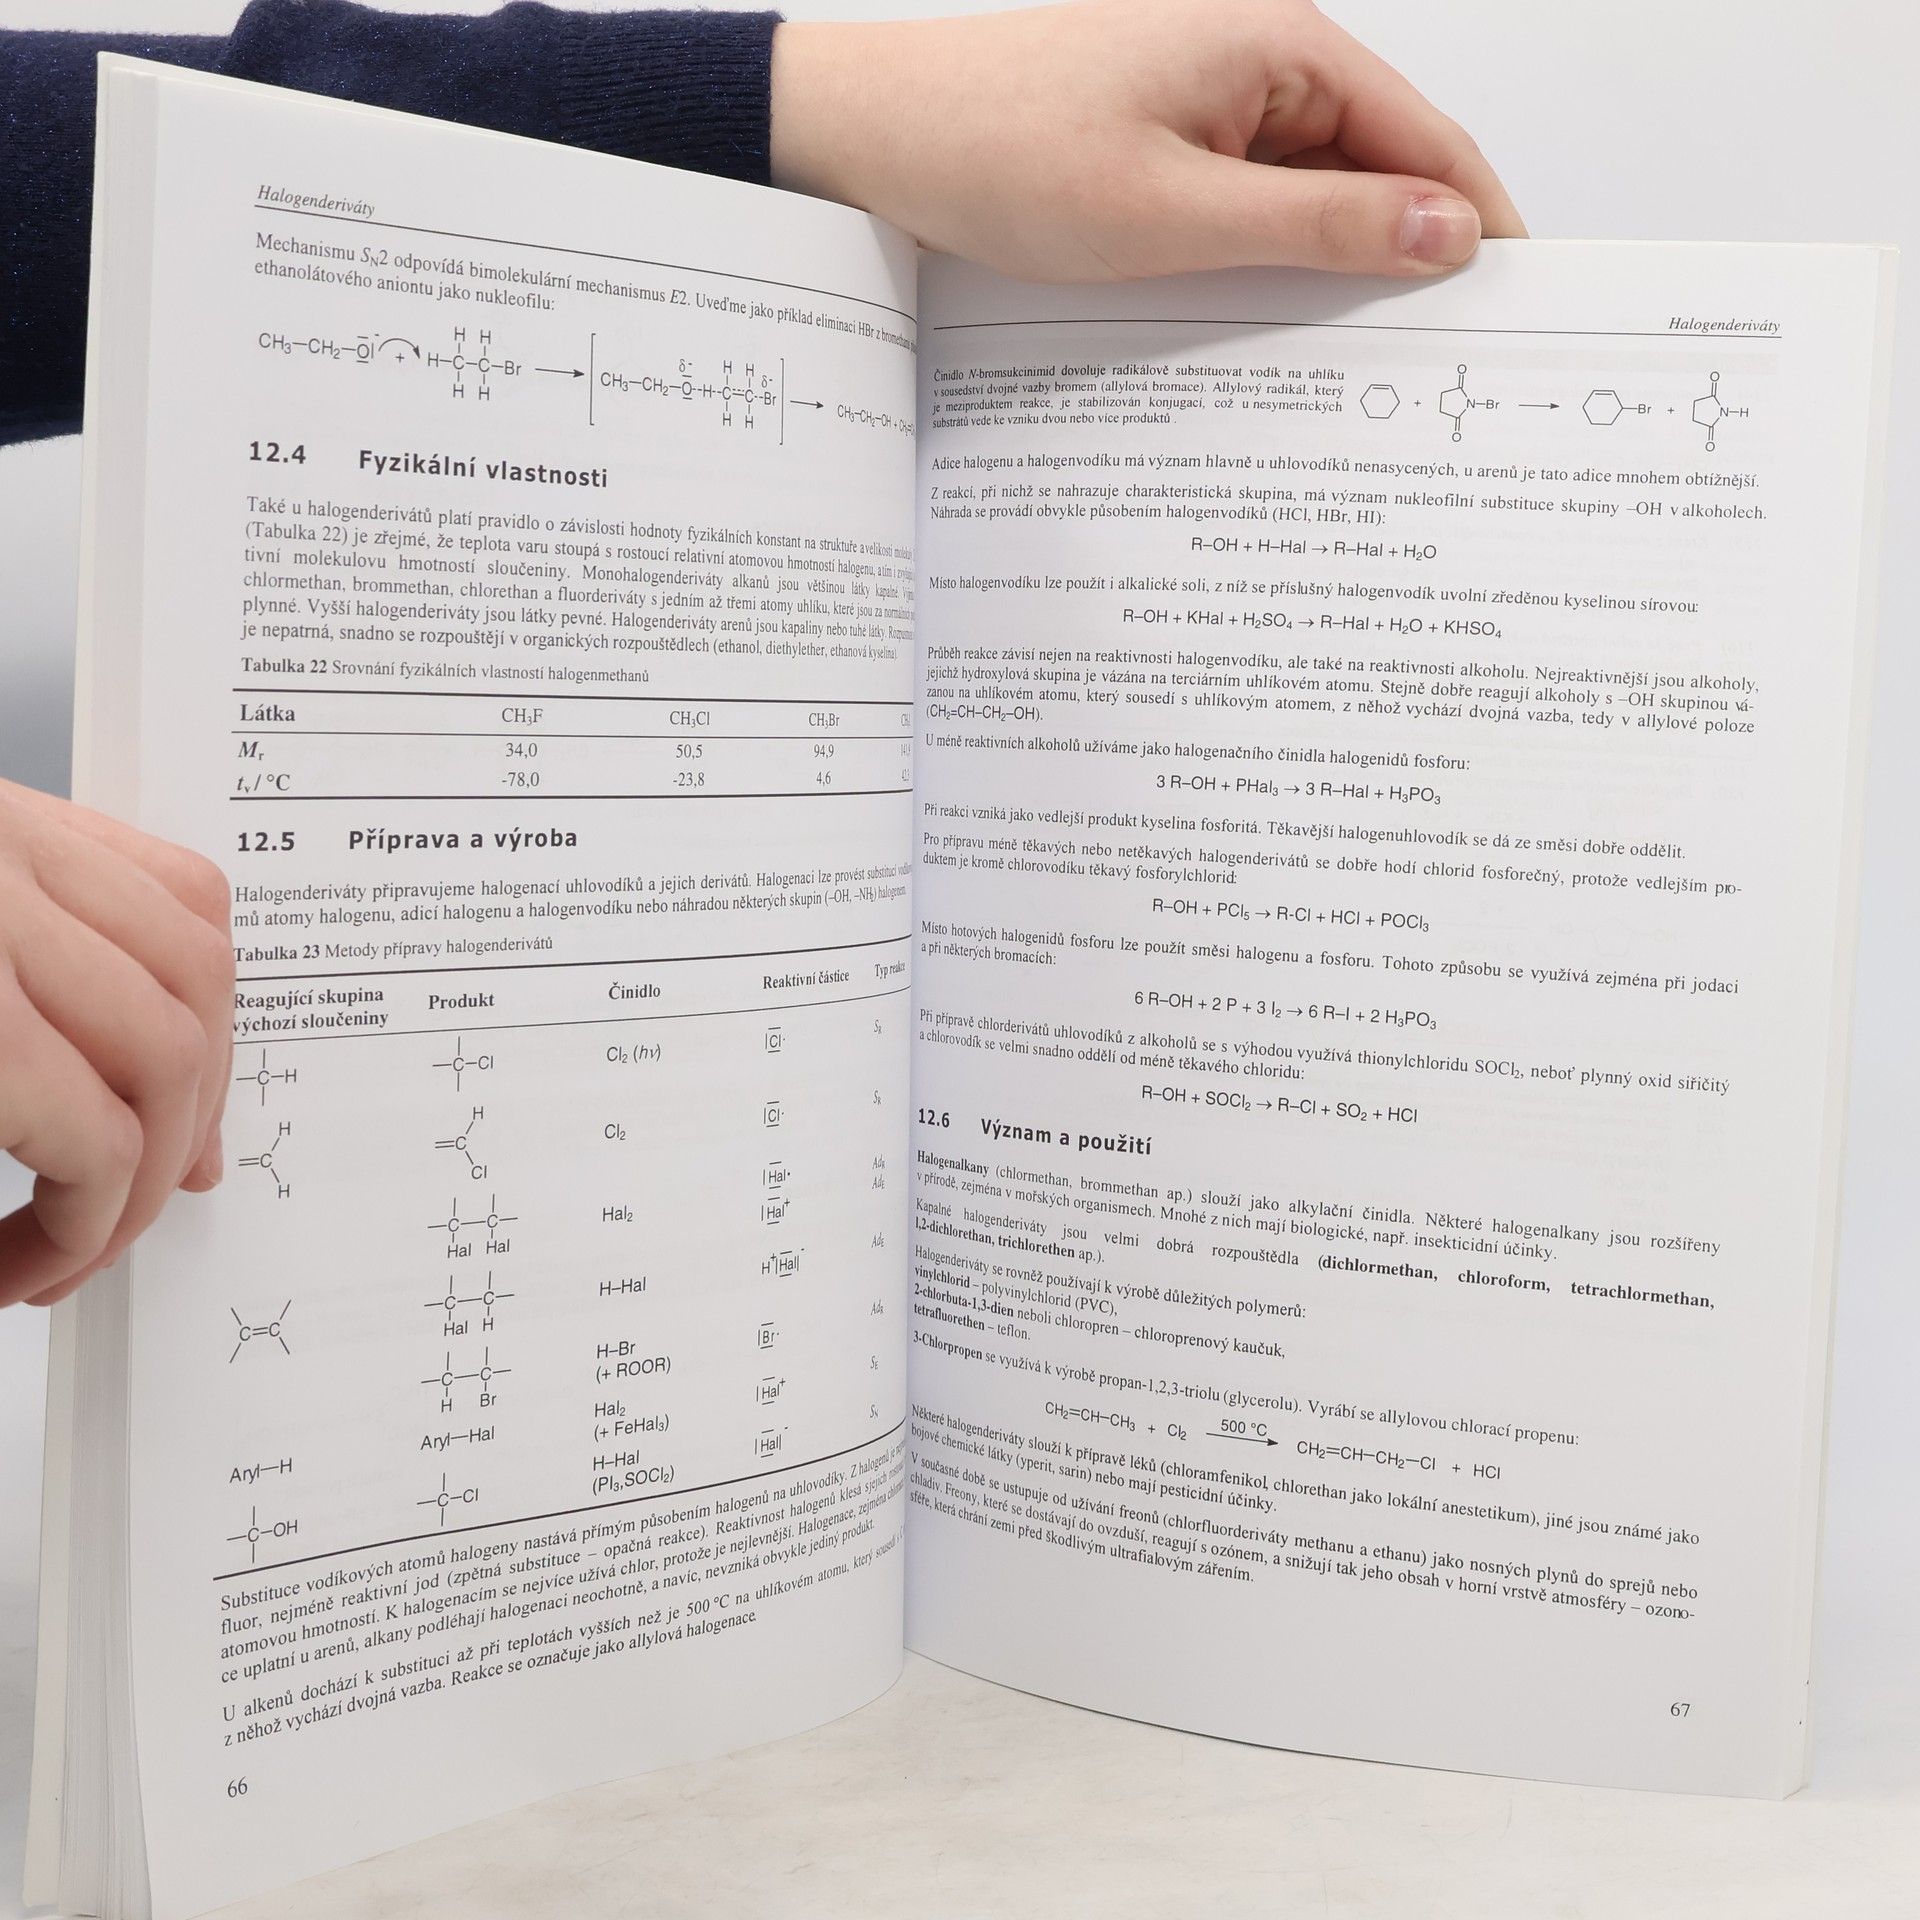 Halogenderiváty
Mechanismu SN2 odpovídá bimolekulární mechanismus E2. Uveďme jako příklad eliminaci HBr z bromethanu
ethanolátového aniontu jako nukleofilu:
CH3–CH2–O + H–C–C–Br → CH3–CH2–O--H--C=C--Br → CH3–CH2–OH +
H H H H
H H H H
δ- δ-
12.4 Fyzikální vlastnosti
Také u halogenderivátů platí pravidlo o závislosti hodnoty fyzikálních konstant na struktuře a velikosti
(Tabulka 22) je zřejmé, že teplota varu stoupá s rostoucí relativní atomovou hmotností halogenu, a tím i
tivní molekulovu hmotností sloučeniny. Monohalogenderiváty alkanů jsou většinou látky kapalné.
chlormethan, brommethan, chlorethan a fluorderiváty s jedním až třemi atomy uhlíku, které jsou za
plynné. Vyšší halogenderiváty jsou látky pevné. Halogenderiváty arenů jsou kapaliny nebo tuhé látky.
je nepatrná, snadno se rozpouštějí v organických rozpouštědlech (ethanol, diethylether, ethanová kyselina).
Tabulka 22 Srovnání fyzikálních vlastností halogenmethanů
Látka CH3F CH3Cl CH3Br
Mr 34,0 50,5 94,9
tv / °C -78,0 -23,8 4,6
12.5 Příprava a výroba
Halogenderiváty připravujeme halogenací uhlovodíků a jejich derivátů. Halogenaci lze provést substitucí
mů atomy halogenu, adicí halogenu a halogenvodíku nebo náhradou některých skupin (–OH, –NH2) halogenem.
Tabulka 23 Metody přípravy halogenderivátů
Reagující skupina Produkt Činidlo Reaktivní částice Typ reakce
výchozí sloučeniny
–C–H –C–Cl Cl2 (hν) |Cl· SR
=C H H =C H Cl Cl2 |Cl· SR
–C–C– Hal Hal Hal2 |Hal· AdR
|Hal+ AdE
C=C –C–C– Hal H H–Hal H+|Hal|- AdE
–C–C– H Br H–Br |Br· AdR
(+ ROOR)
Aryl–H Aryl–Hal Hal2 |Hal+ SE
(+ FeHal3)
–C–OH –C–Cl H–Hal |Hal|- SN
(PI3,SOCl2)
Substituce vodíkových atomů halogeny nastává přímým působením halogenů na uhlovodíky. Z halogenů je
fluor, nejméně reaktivní jod (zpětná substituce – opačná reakce). Reaktivnost halogenů klesá s jejich
atomovou hmotností. K halogenacím se nejvíce užívá chlor, protože je nejlevnější. Halogenace, zejména
ce uplatní u arenů, alkany podléhají halogenaci neochotně, a navíc, nevzniká obvykle jediný produkt.
U alkenů dochází k substituci až při teplotách vyšších než je 500 °C na uhlíkovém atomu, který
z něhož vychází dvojná vazba. Reakce se označuje jako allylová halogenace.
66
Halogenderiváty
Činidlo N-bromsukcinimid dovoluje radikálově substituovat vodík na uhlíku
v sousedství dvojné vazby bromem (allylová bromace). Allylový radikál, který
je meziproduktem reakce, je stabilizován konjugací, což u nesymetrických
substrátů vede ke vzniku dvou nebo více produktů .
+ O N–Br O → –Br + O N–H O
Adice halogenu a halogenvodíku má význam hlavně u uhlovodíků nenasycených, u arenů je tato adice mnohem obtížnější.
Z reakcí, při nichž se nahrazuje charakteristická skupina, má význam nukleofilní substituce skupiny –OH v alkoholech.
Náhrada se provádí obvykle působením halogenvodíků (HCl, HBr, HI):
R–OH + H–Hal → R–Hal + H2O
Místo halogenvodíku lze použít i alkalické soli, z níž se příslušný halogenvodík uvolní zředěnou kyselinou sírovou:
R–OH + KHal + H2SO4 → R–Hal + H2O + KHSO4
Průběh reakce závisí nejen na reaktivnosti halogenvodíku, ale také na reaktivnosti alkoholu. Nejreaktivnější jsou alkoholy,
jejichž hydroxylová skupina je vázána na terciárním uhlíkovém atomu. Stejně dobře reagují alkoholy s –OH skupinou vá-
zanou na uhlíkovém atomu, který sousedí s uhlíkovým atomem, z něhož vychází dvojná vazba, tedy v allylové poloze
(CH2=CH–CH2–OH).
U méně reaktivních alkoholů užíváme jako halogenačního činidla halogenidů fosforu:
3 R–OH + PHal3 → 3 R–Hal + H3PO3
Při reakci vzniká jako vedlejší produkt kyselina fosforitá. Těkavější halogenuhlovodík se dá ze směsi dobře oddělit.
Pro přípravu méně těkavých nebo netěkavých halogenderivátů se dobře hodí chlorid fosforečný, protože vedlejším pro-
duktem je kromě chlorovodíku těkavý fosforylchlorid:
R–OH + PCl5 → R-Cl + HCl + POCl3
Místo hotových halogenidů fosforu lze použít směsi halogenu a fosforu. Tohoto způsobu se využívá zejména při jodaci
a při některých bromacích:
6 R–OH + 2 P + 3 I2 → 6 R–I + 2 H3PO3
Při přípravě chlorderivátů uhlovodíků z alkoholů se s výhodou využívá thionylchloridu SOCl2, neboť plynný oxid siřičitý
a chlorovodík se velmi snadno oddělí od méně těkavého chloridu:
R–OH + SOCl2 → R–Cl + SO2 + HCl
12.6 Význam a použití
Halogenalkany (chlormethan, brommethan ap.) slouží jako alkylační činidla. Některé halogenalkany jsou rozšířeny
v přírodě, zejména v mořských organismech. Mnohé z nich mají biologické, např. insekticidní účinky.
Kapalné halogenderiváty jsou velmi dobrá rozpouštědla (dichlormethan, chloroform, tetrachlormethan,
1,2-dichlorethan, trichlorethen ap.).
Halogenderiváty se rovněž používají k výrobě důležitých polymerů:
vinylchlorid – polyvinylchlorid (PVC),
2-chlorbuta-1,3-dien neboli chloropren – chloroprenový kaučuk,
tetrafluorethen – teflon.
3-Chlorpropen se využívá k výrobě propan-1,2,3-triolu (glycerolu). Vyrábí se allylovou chlorací propenu:
CH2=CH–CH3 + Cl2 500 °C → CH2=CH–CH2–Cl + HCl
Některé halogenderiváty slouží k přípravě léků (chloramfenikol, chlorethan jako lokální anestetikum), jiné jsou známé jako
bojové chemické látky (yperit, sarin) nebo mají pesticidní účinky.
V současné době se ustupuje od užívání freonů (chlorfluorderiváty methanu a ethanu) jako nosných plynů do sprejů nebo
chladiv. Freony, které se dostávají do ovzduší, reagují s ozónem, a snižují tak jeho obsah v horní vrstvě atmosféry – ozono-
sféře, která chrání zemi před škodlivým ultrafialovým zářením.
67